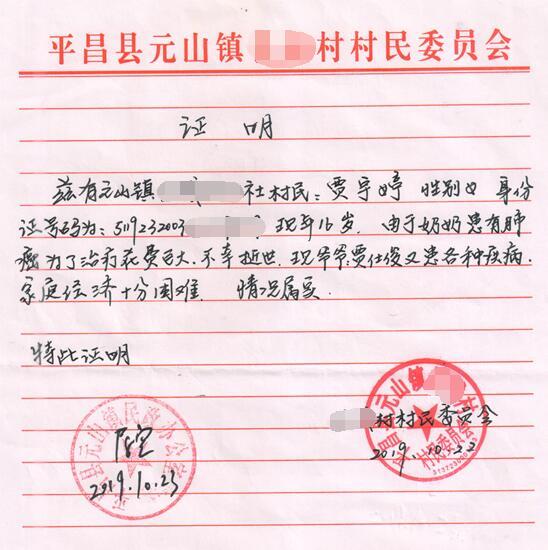 平昌县元山镇 村村民委员会
证 明
兹有元山镇 社村民：贾宇婷 性别女 身份
证号码为：5119232003 现年16岁，由于奶奶患有肺
癌为了治疗花费巨大、不幸逝世，现爷爷贾仕俊又患各种疾病，
家庭经济十分困难。情况属实。
特此证明
村村民委员会
2019.10.22
元山镇民政办公
2019.10.23
元山镇
村民委员会